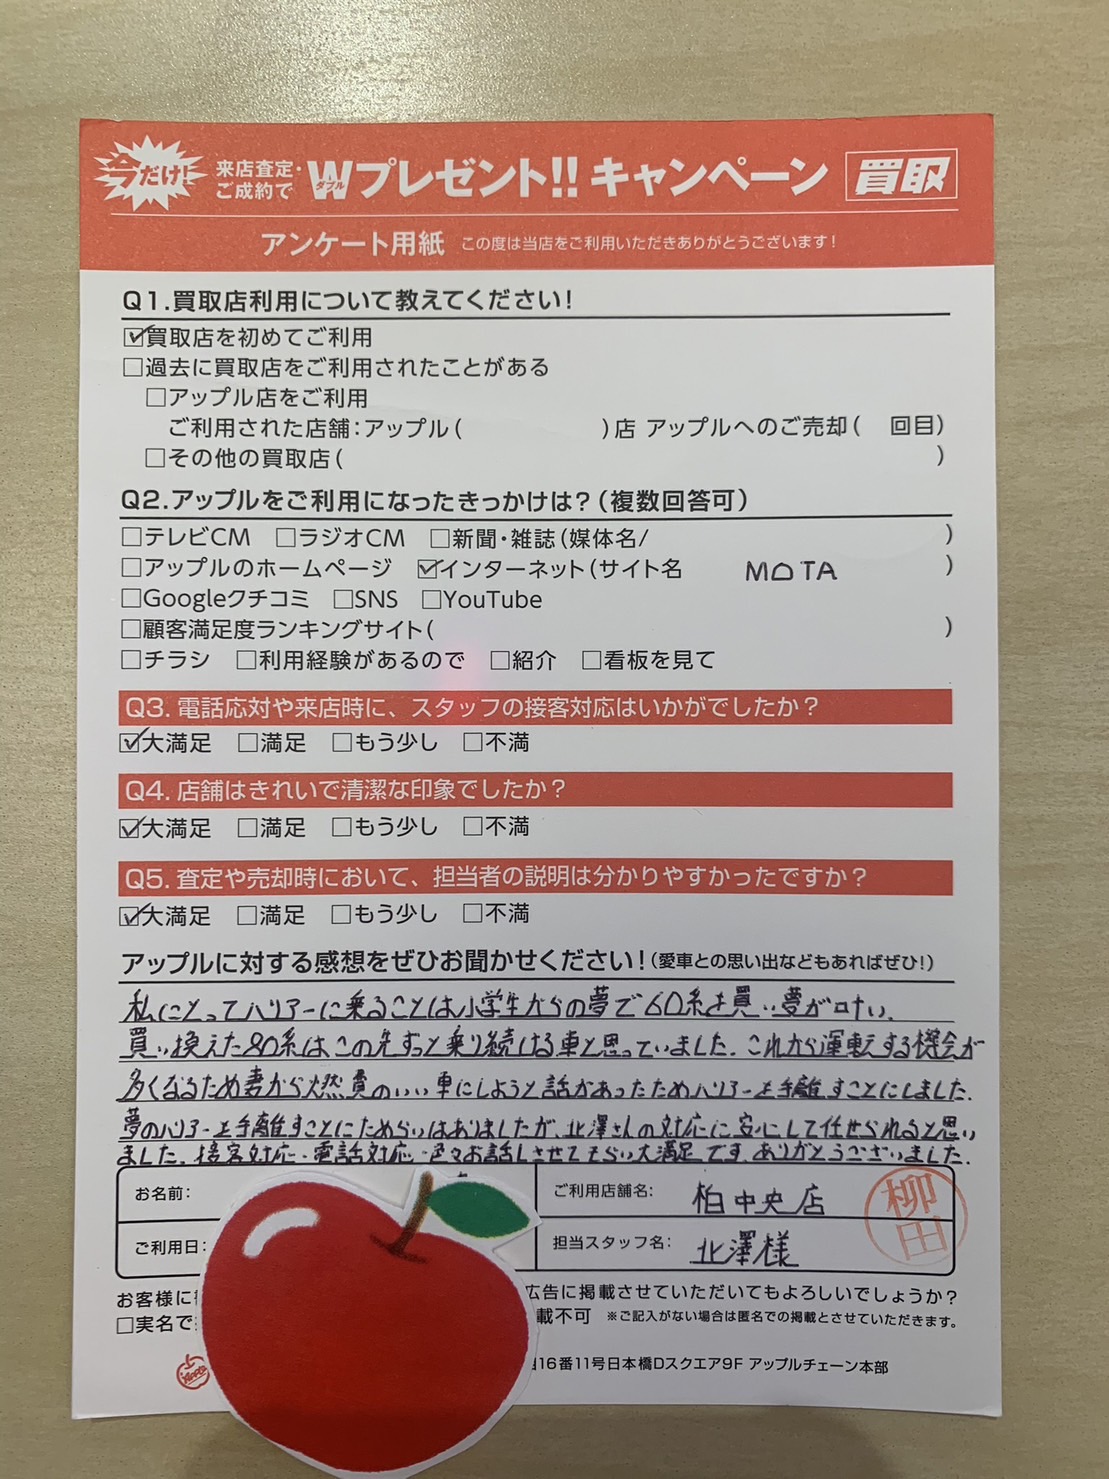 今だけ!
来店査定・
ご成約で
Wプレゼント!!キャンペーン
ダブル
買取
アンケート用紙 この度は当店をご利用いただきありがとうございます!
Q1.買取店利用について教えてください!
☑買取店を初めてご利用
□過去に買取店をご利用されたことがある
□アップル店をご利用
ご利用された店舗:アップル( )店 アップルへのご売却( 回目)
□その他の買取店( )
Q2.アップルをご利用になったきっかけは?(複数回答可)
□テレビCM □ラジオCM □新聞・雑誌(媒体名/ )
□アップルのホームページ ☑インターネット(サイト名 MOTA )
□Googleクチコミ □SNS □YouTube
□顧客満足度ランキングサイト( )
□チラシ □利用経験があるので □紹介 □看板を見て
Q3. 電話応対や来店時に、スタッフの接客対応はいかがでしたか?
☑大満足 □満足 □もう少し □不満
Q4. 店舗はきれいで清潔な印象でしたか?
☑大満足 □満足 □もう少し □不満
Q5. 査定や売却時において、担当者の説明は分かりやすかったですか?
☑大満足 □満足 □もう少し □不満
アップルに対する感想をぜひお聞かせください!(愛車との思い出などもあればぜひ!)
私にとってハリアーに乗ることは小学生からの夢で60系を買い夢が叶い、
買い換えた80系はこの先ずっと乗り続ける車と思っていました。これから運転する機会が
多くなるため妻から燃費のいい車にしようと話があったためハリアーを手離すことにしました。
夢のハリアーを手離すことにためらいはありましたが、北澤さんの対応に安心して任せられると思い
ました。接客対応・電話対応・色々お話しさせてもらい大満足です。ありがとうございました。
お名前:
ご利用店舗名: 柏中央店
柳田
ご利用日:
担当スタッフ名: 北澤様
お客様に 広告に掲載させていただいてもよろしいでしょうか?
□実名で 載不可 ※ご記入がない場合は匿名での掲載とさせていただきます。
Apple 16番11号日本橋Dスクエア9F アップルチェーン本部